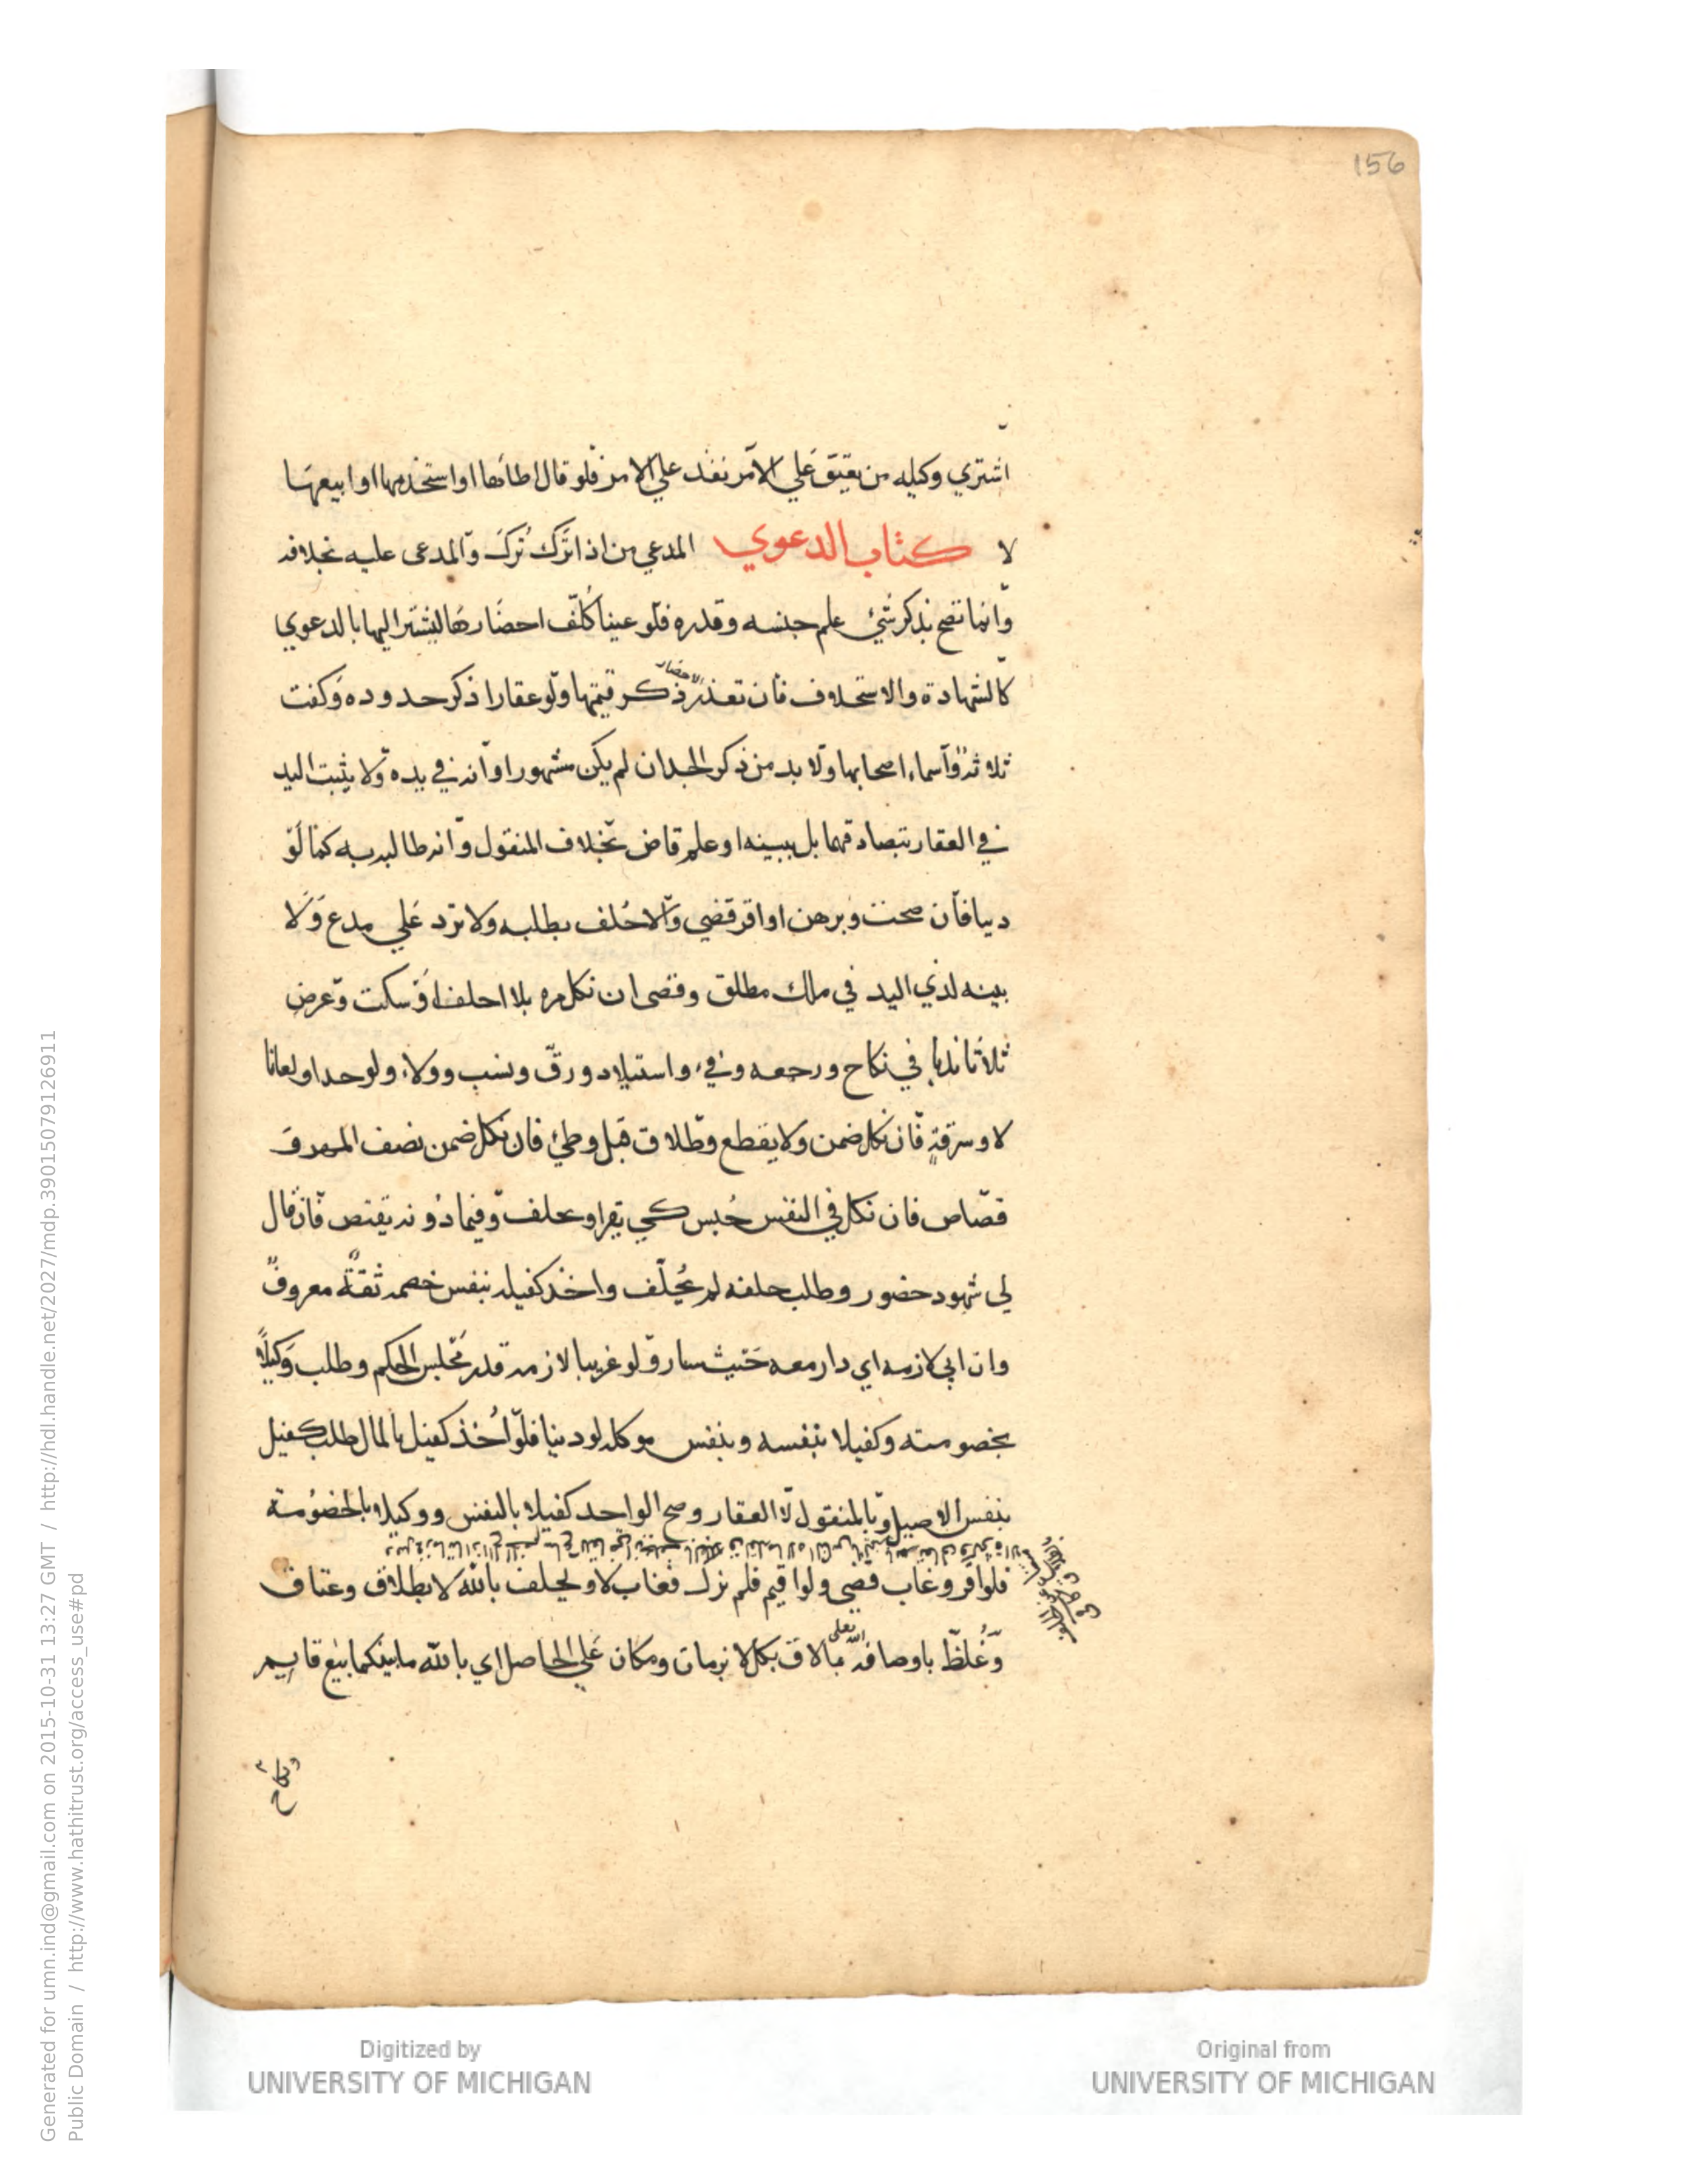 156
اشتري وكيله من يعتق علي الآمر نفذ علي الامر فلو قال اطاها او استخدمها او ابيعها
لا كتاب الدعوي المدعي من اذا ترك تُركَ والمدعى عليه بخلافه
وانما تصح بذكر شئ علم جنسه وقدره فلو عينا كُلّف احضارها ليشير اليها بالدعوي
كالشهادة والاستحلاف فان تعذر الاحضار ذكر قيمتها ولو عقارا ذكر حدوده وكفت
ثلاثة واسماء اصحابها ولا بد من ذكر الجد ان لم يكن مشهورا وانه في يده ولا يثبت اليد
في العقار بتصادقهما بل ببينه او علم قاض بخلاف المنقول وانه طالبه به كما لو
دينا فان صحت وبرهن او اقر قضي والا حُلف بطلبه ولا ترد علي مدع ولا
بينه لذي اليد في ملك مطلق وقضى ان نكل مره بلا احلف او سكت وعرض
ثلاثا ندبا في نكاح ورجعه وفيء واستيلاد ورقّ ونسب وولاء ولو حدا ولعانا
لا وسرقةٍ فان نكل ضمن ولا يقطع وطلاق قبل وطئ فان نكل ضمن نصف المهر و
قصاص فان نكل في النفس حُبس كي يقر او يحلف وفيما دونه يقتص فان قال
لي شهود حضور وطلب حلفه لم يُحلّف واخذ كفيله بنفس خصمه ثقةً معروفً
وان ابي لازمه اي دار معه حيث سار ولو غريبا لازمه قدر مجلس الحكم وطلب وكيلًا
بخصومته وكفيلا بنفسه وبنفس موكله لو دينا فلو اُخذ كفيل بالمال طلب كفيل
بنفس الاصيل وبالمنقول لا العقار وصح الواحد كفيلا بالنفس ووكيلا بالخصومة
فلو اقر وغاب قضى ولو اقيم فلم يزك فغاب لا ويحلف بالله لا بطلاق وعتاق
وغُلظّ باوصافه تعلى بما لاق بكل لا بزمان ومكان علي الحاصل اي بالله ما بينكما بيع قايم
ونكاح
Digitized by
UNIVERSITY OF MICHIGAN
Original from
UNIVERSITY OF MICHIGAN
Generated for umn.ind@gmail.com on 2015-10-31 13:27 GMT / http://hdl.handle.net/2027/mdp.39015079126911
Public Domain / http://www.hathitrust.org/access_use#pd